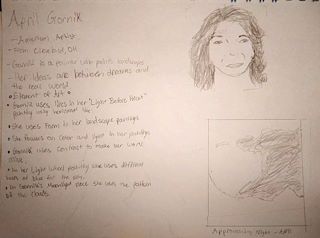 April Gornik
- American Artist
- From Cleveland, OH
- Gornik is a painter who paints landscapes
- Her ideas are between dreams and
the real world
• Element of Art •
• Gornik uses lines in her "Light Before Heat"
painting only horizontal line.
• She uses Form in her landscape paintings
• She focuses on color and light in her paintings
• Gornik uses contrast to make her work
• In her Light when painting she uses different
of blue for the sky.
• In Gornik's Moonlight piece she uses the pattern
of the clouds.
Approaching Night -